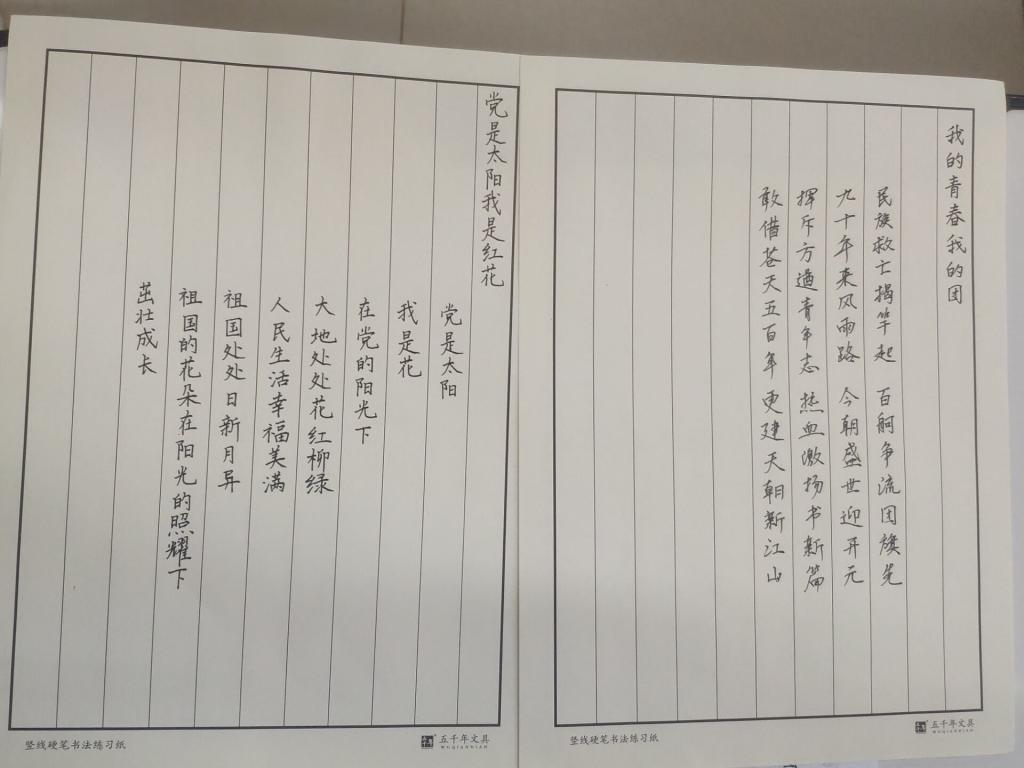 我的青春我的团
民族救亡揭竿起 百舸争流团旗先
九十年来风雨路 今朝盛世迎开元
挥斥方遒青年志 热血激扬书新篇
敢借苍天五百年 更建天朝新江山
竖线硬笔书法练习纸
五千年文具
WUQIANNIAN
党是太阳我是红花
党是太阳
我是花
在党的阳光下
大地处处花红柳绿
人民生活幸福美满
祖国处处日新月异
祖国的花朵在阳光的照耀下
茁壮成长
竖线硬笔书法练习纸
五千年文具
WUQIANNIAN